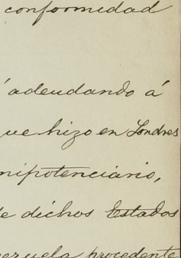 conformidad
adeudando á
ue hizo en Londres
nipotenciario,
e dichos Estados
ezuela procedente